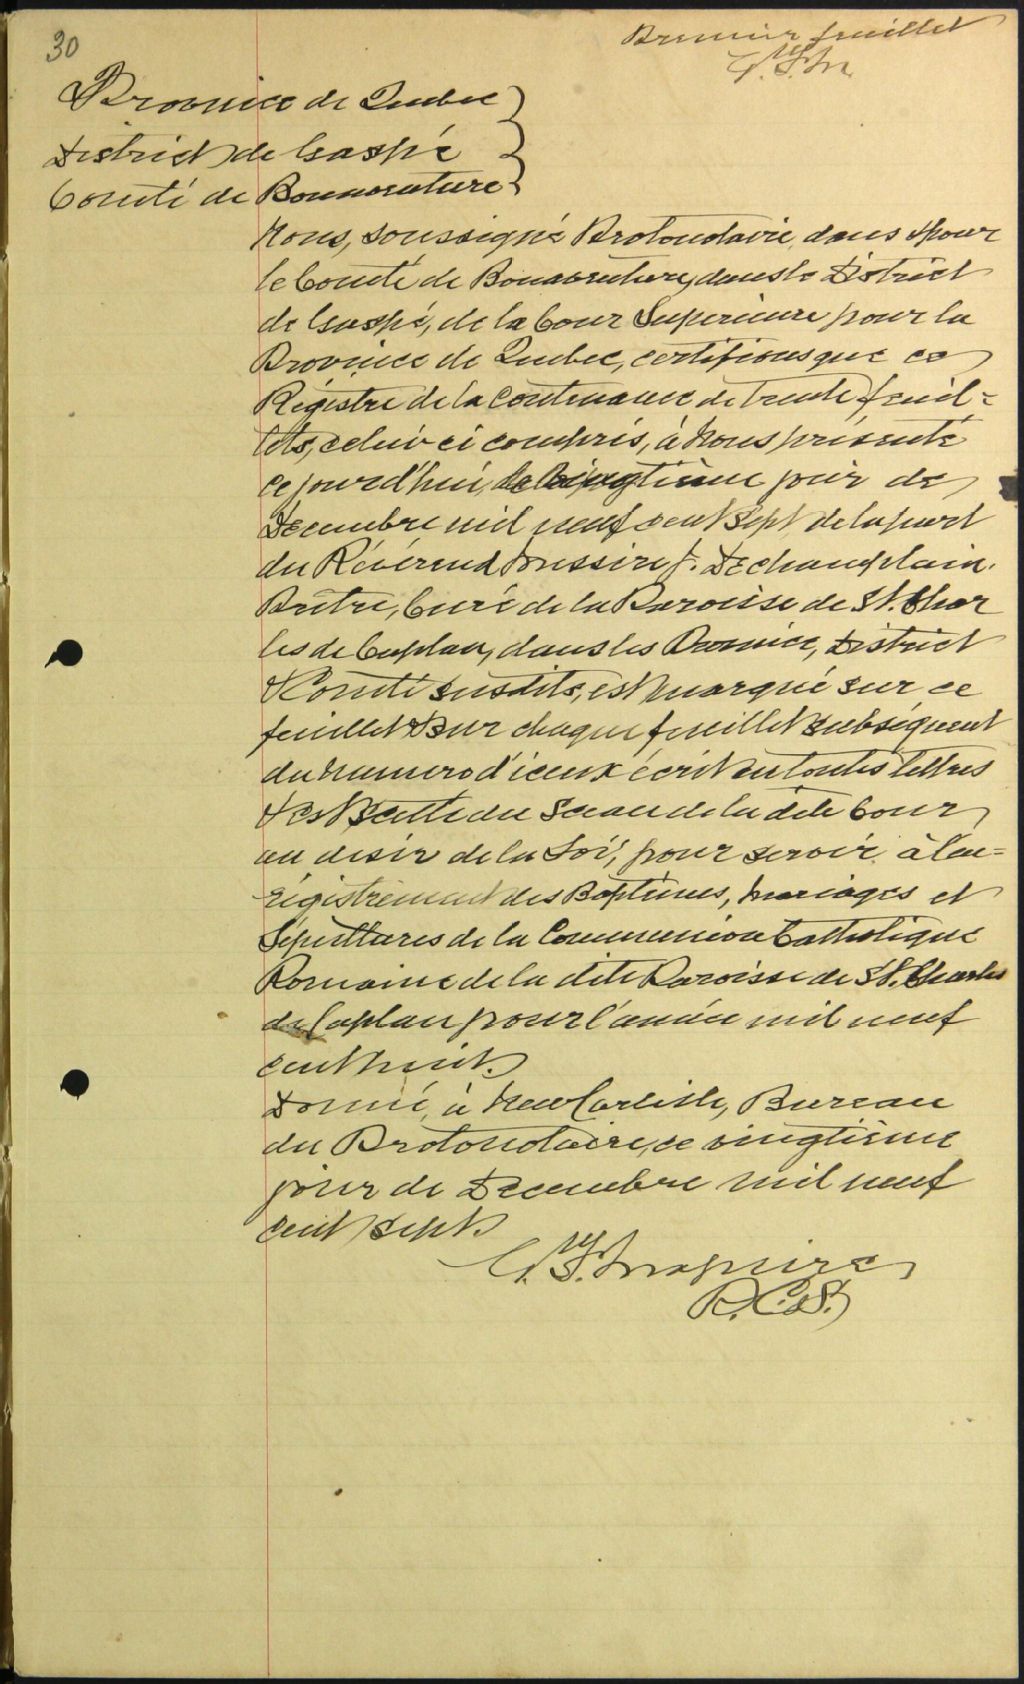 30
Premier feuillet
W. S. M
Province de Quebec
District de Gaspé
Comté de Bonaventure
Nous, soussigné Protonotaire, dans & pour
le Comté de Bonaventure, dans le District
de Gaspé, de la Cour Superieure pour la
Province de Quebec, certifions que ce
Régistre de la Contenance de trente feuil-
lets, celui-ci compris, à Nous présenté
ce jourd'hui, le vingtième jour de
Decembre mil neuf cent sept de la part
du Révérend Messire J. DeChamplain.
Prêtre, Curé de la Paroisse de St. Char
les de Caplan, dans les Province, District
& Comté susdits, est marqué sur ce
feuillet & sur chaque feuillet subséquent
du Numero d'iceux écrit en toutes lettres
& est scellé du Sceau de la dite Cour
au desir de la Loi, pour servir à l'en-
régistrement des Baptêmes, Mariages et
Sépultures de la Communion Catholique
Romaine de la dite Paroisse de St. Charles
de Caplan pour l'année mil neuf
cent huit.
Donné, à New Carlisle, Bureau
du Protonotaire, ce vingtième
jour de Decembre mil neuf
cent sept.
W. S. Maguire
P. C. S.